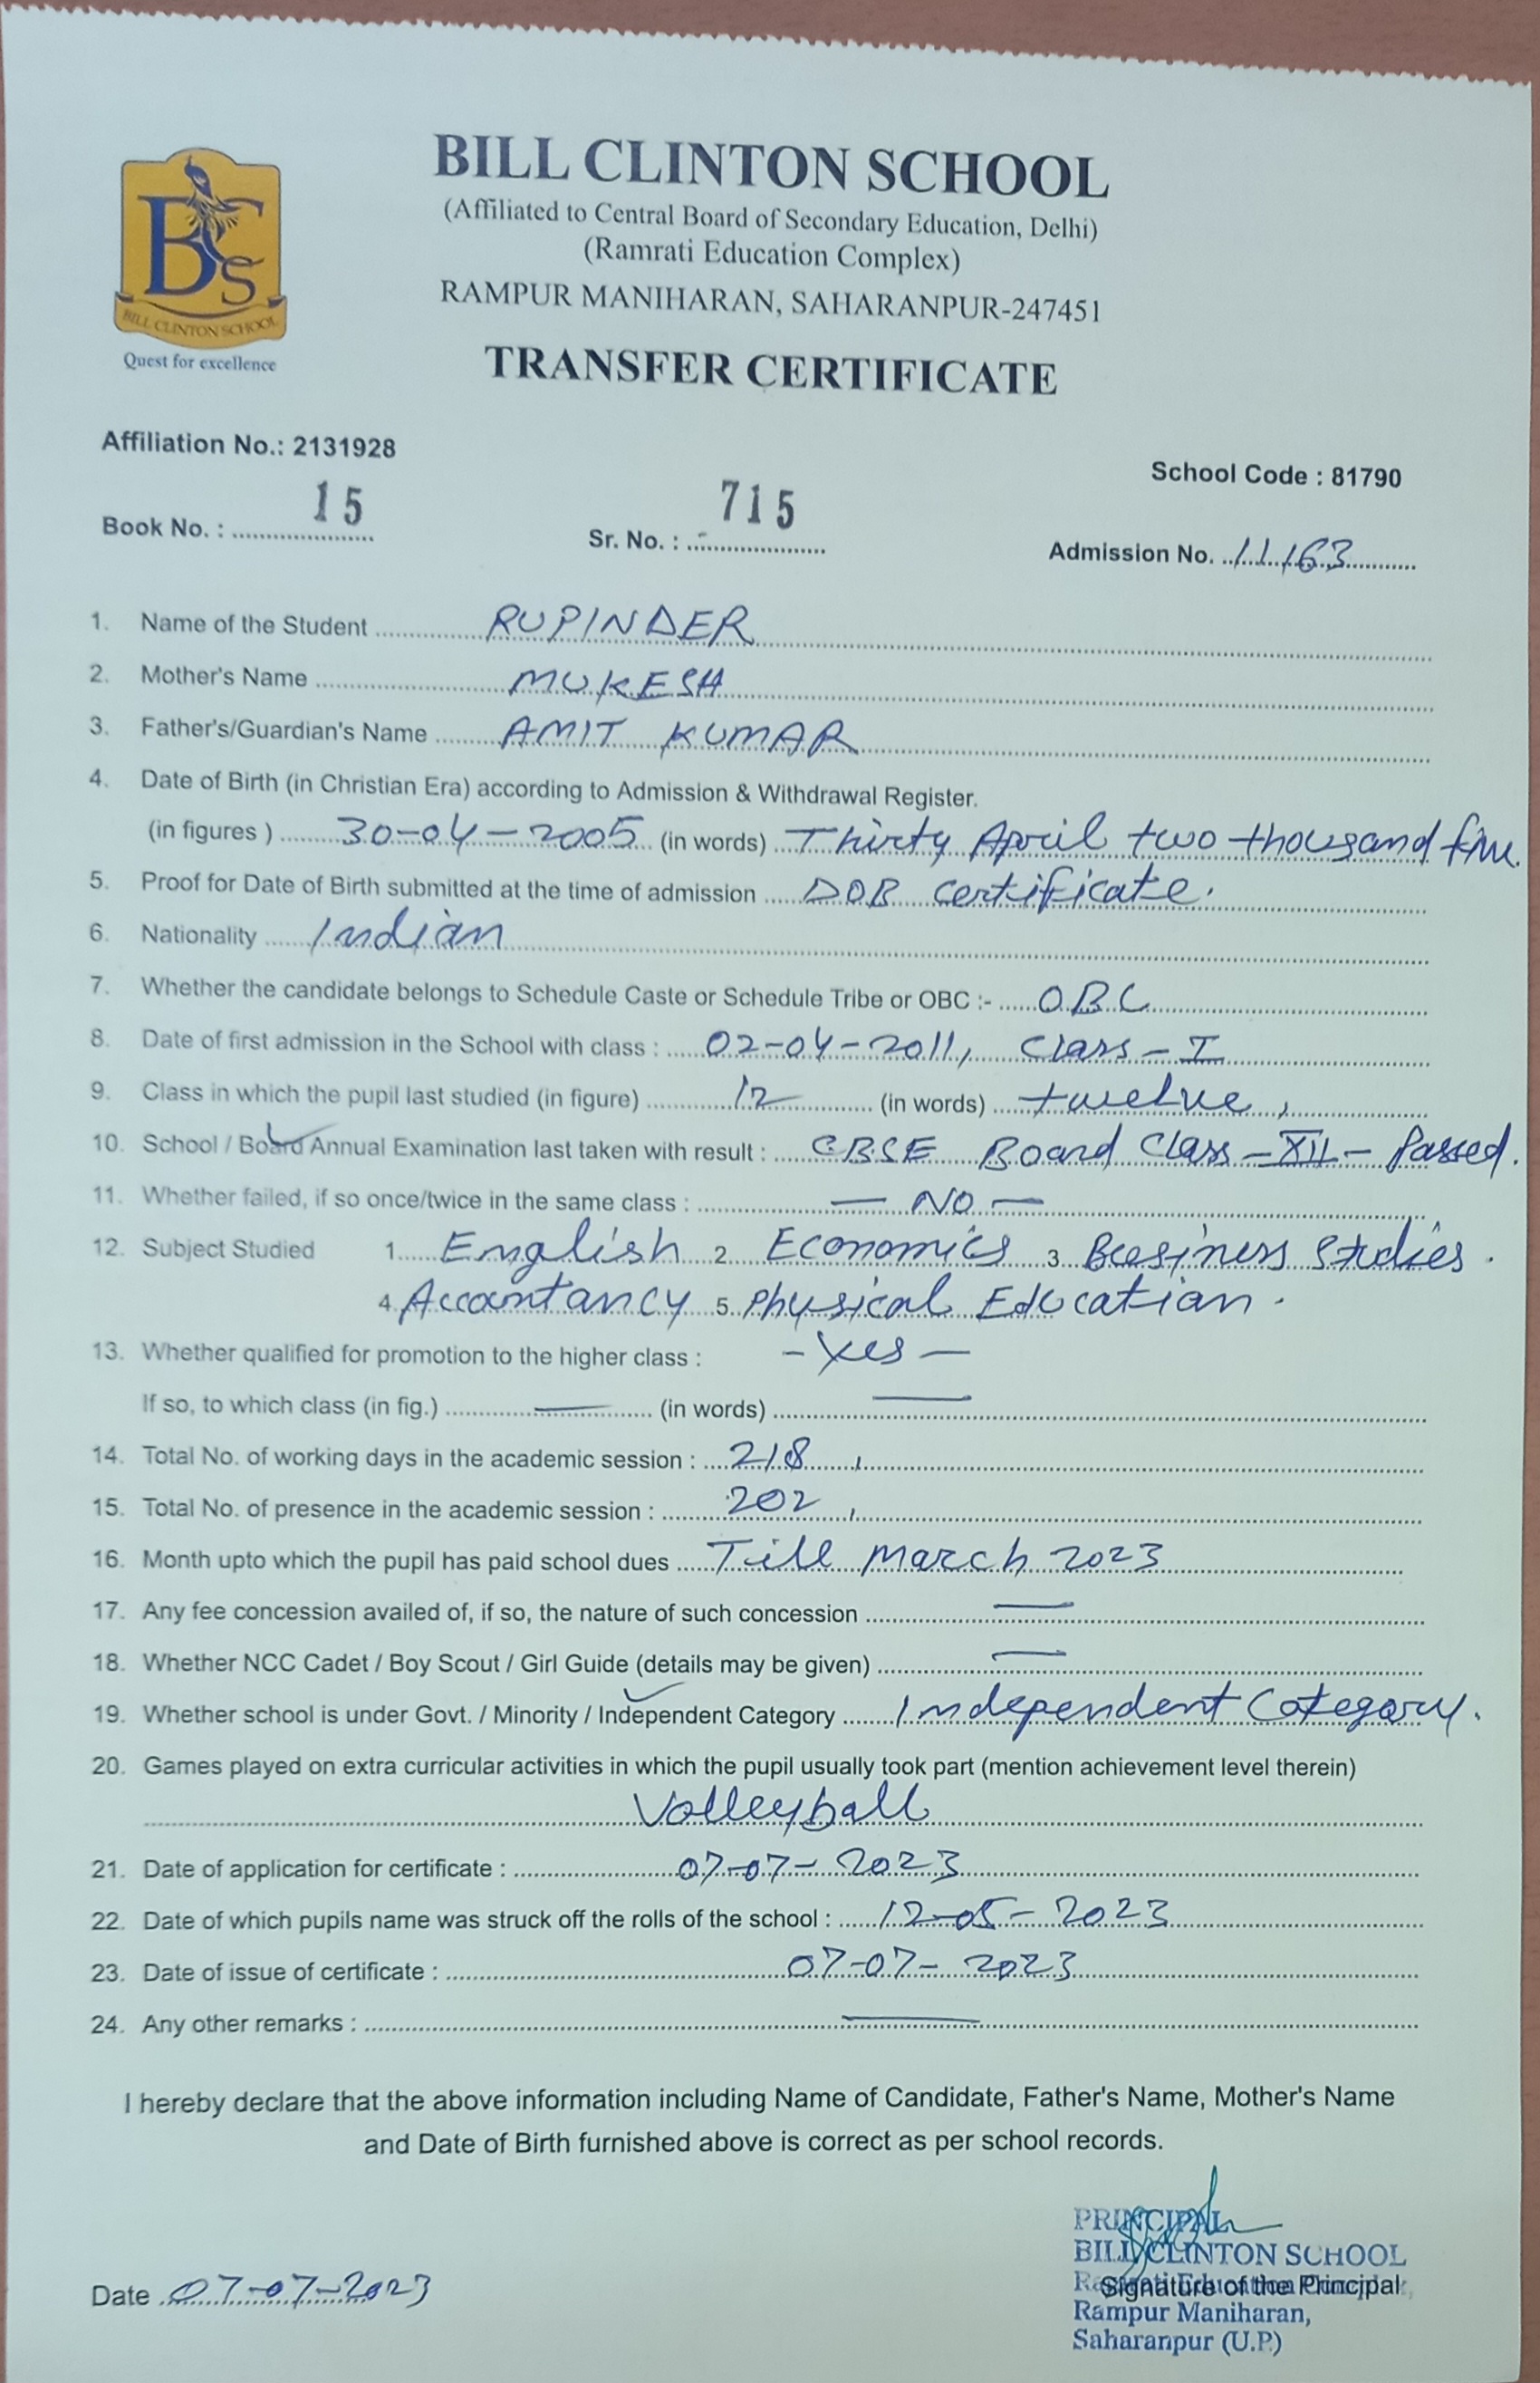 BILL CLINTON SCHOOL
(Affiliated to Central Board of Secondary Education, Delhi)
(Ramrati Education Complex)
RAMPUR MANIHARAN, SAHARANPUR-247451
BCS
BILL CLINTON SCHOOL
Quest for excellence
TRANSFER CERTIFICATE
Affiliation No.: 2131928
School Code : 81790
Book No. : 15 Sr. No. : 715 Admission No. 11163
1. Name of the Student RUPINDER
2. Mother's Name MUKESH
3. Father's/Guardian's Name AMIT KUMAR
4. Date of Birth (in Christian Era) according to Admission & Withdrawal Register.
(in figures ) 30-04-2005 (in words) Thirty April two thousand five.
5. Proof for Date of Birth submitted at the time of admission DOB certificate.
6. Nationality Indian
7. Whether the candidate belongs to Schedule Caste or Schedule Tribe or OBC :- OBC
8. Date of first admission in the School with class : 02-04-2011, Class - I
9. Class in which the pupil last studied (in figure) 12 (in words) twelve,
10. School / Board Annual Examination last taken with result : CBSE Board Class - XII - Passed.
11. Whether failed, if so once/twice in the same class : — NO —
12. Subject Studied 1. English 2. Economics 3. Business Studies.
4. Accountancy 5. Physical Education.
13. Whether qualified for promotion to the higher class : - Yes -
If so, to which class (in fig.) — (in words) —
14. Total No. of working days in the academic session : 218,
15. Total No. of presence in the academic session : 202,
16. Month upto which the pupil has paid school dues Till March 2023
17. Any fee concession availed of, if so, the nature of such concession —
18. Whether NCC Cadet / Boy Scout / Girl Guide (details may be given) —
19. Whether school is under Govt. / Minority / Independent Category Independent Category.
20. Games played on extra curricular activities in which the pupil usually took part (mention achievement level therein)
Volleyball
21. Date of application for certificate : 07-07-2023
22. Date of which pupils name was struck off the rolls of the school : 12-05-2023
23. Date of issue of certificate : 07-07-2023
24. Any other remarks : —
I hereby declare that the above information including Name of Candidate, Father's Name, Mother's Name
and Date of Birth furnished above is correct as per school records.
PRINCIPAL
BILL CLINTON SCHOOL
Signature of the Principal
Rampur Maniharan,
Saharanpur (U.P.)
Date 07-07-2023